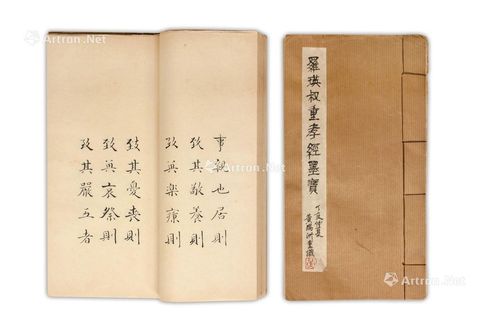 Artron.Net
事親也居則
致其敬養則
致其樂病則
致其憂喪則
致其哀祭則
致其嚴五者
羅瑛叔重孝經墨寶
丁亥仲夏
Artron.Net